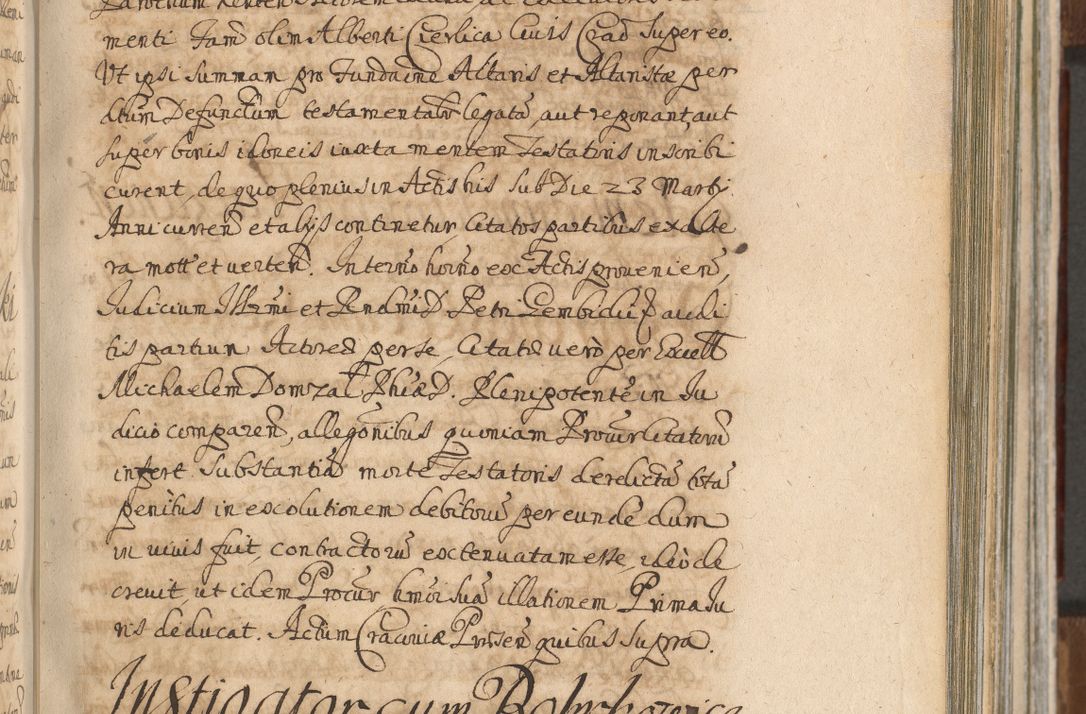 menti Fam̃ olim Alberti Cierlica Ciuis Crac̃ Super eo.
Ut ipsi summam pro Fundaõne Altaris et Altaristæ per
dĩum Defunctum testamentalr̃ legatã, aut reponant, aut
super bonis idoneis iuxta mentem Testatoris inscribi
curent, de quo plenius in Actis his Sub Die 23 Martij.
Anni curren̄ et alijs continetur citatos partibus ex alte
ra mott̃ et verten̄. In termo hoĩno ex Actis provenien̄,
Judicium Illr̃mi et Rndm̃i D. Petri Gembicki audi
tis partium Actorea per se, Citata vero per Excellt̃
Michaelem Domzal Phiæ D. Plenipotentẽ in Ju
dicio comparen̄, allegõnibus quoniam Procur̃ citatorũ
infert Substantiã morte Testatoris derelictã totã
penitus in exolutionem debitorũ per eundẽ dum
in vivis fuit, contractorũ extenuatam esse, ideo de
crevit, ut idem Procur̃ hmõi suã illationem Prima Ju
ris deducat. Actum Cracoviæ Præsen̄ quibus supra.
Instigator cum